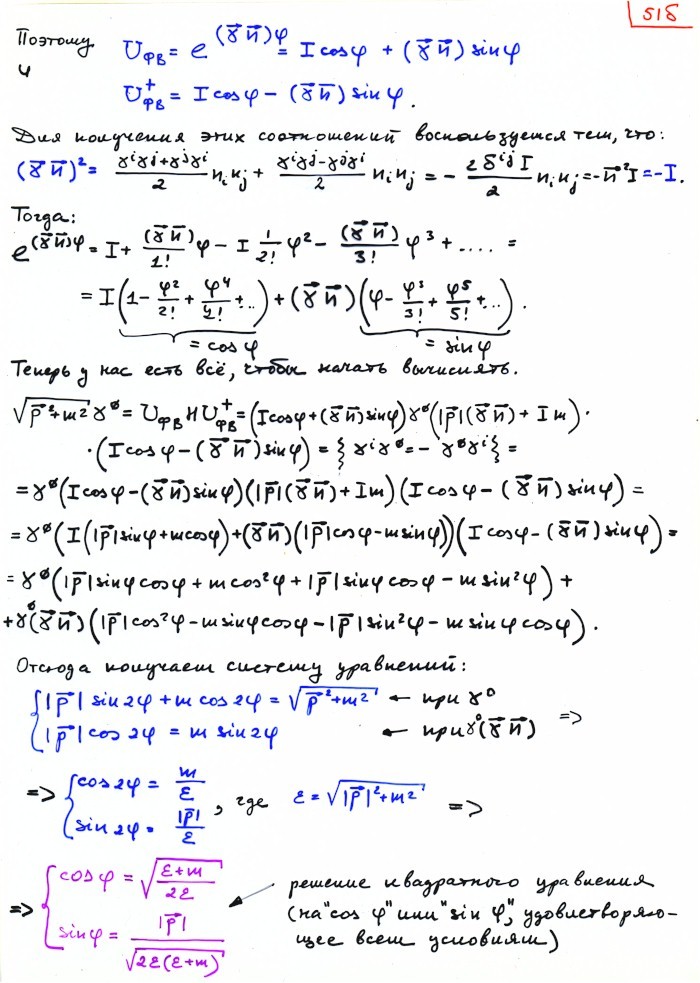 51б
Поэтому U_ФВ = e^{(γ⃗ n⃗)φ} = I cosφ + (γ⃗ n⃗) sinφ
и U⁺_ФВ = I cosφ − (γ⃗ n⃗) sinφ.
Для получения этих соотношений воспользуемся тем, что:
(γ⃗ n⃗)² = (γⁱγʲ+γʲγⁱ)/2 nᵢnⱼ + (γⁱγʲ−γʲγⁱ)/2 nᵢnⱼ = − (2δ^{ij} I)/2 nᵢnⱼ = −n⃗² I = −I.
Тогда:
e^{(γ⃗ n⃗)φ} = I + (γ⃗ n⃗)/1! φ − I 1/2! φ² − (γ⃗ n⃗)/3! φ³ + .... =
= I(1 − φ²/2! + φ⁴/4! + ...) + (γ⃗ n⃗)(φ − φ³/3! + φ⁵/5! + ...).
= cosφ = sinφ
Теперь у нас есть всё, чтобы начать вычислять.
√(p⃗²+m²) γ⁰ = U_ФВ H U⁺_ФВ = (I cosφ + (γ⃗ n⃗) sinφ) γ⁰ (|p⃗|(γ⃗ n⃗) + I m) ·
· (I cosφ − (γ⃗ n⃗) sinφ) = { γⁱγ⁰ = − γ⁰γⁱ } =
= γ⁰ (I cosφ − (γ⃗ n⃗) sinφ)(|p⃗|(γ⃗ n⃗) + Im)(I cosφ − (γ⃗ n⃗) sinφ) =
= γ⁰ (I(|p⃗| sinφ + m cosφ) + (γ⃗ n⃗)(|p⃗| cosφ − m sinφ))(I cosφ − (γ⃗ n⃗) sinφ) =
= γ⁰ (|p⃗| sinφ cosφ + m cos²φ + |p⃗| sinφ cosφ − m sin²φ) +
+ γ⁰(γ⃗ n⃗)(|p⃗| cos²φ − m sinφ cosφ − |p⃗| sin²φ − m sinφ cosφ).
Отсюда получаем систему уравнений:
{ |p⃗| sin2φ + m cos2φ = √(p⃗²+m²) ← при γ⁰
|p⃗| cos2φ = m sin2φ ← при γ⁰(γ⃗ n⃗) =>
=> { cos2φ = m/ε
sin2φ = |p⃗|/ε , где ε = √(|p⃗|²+m²) =>
=> { cosφ = √((ε+m)/2ε)
sinφ = |p⃗|/√(2ε(ε+m))
решение квадратного уравнения
(на "cos φ" или "sin φ", удовлетворяю-
щее всем условиям)